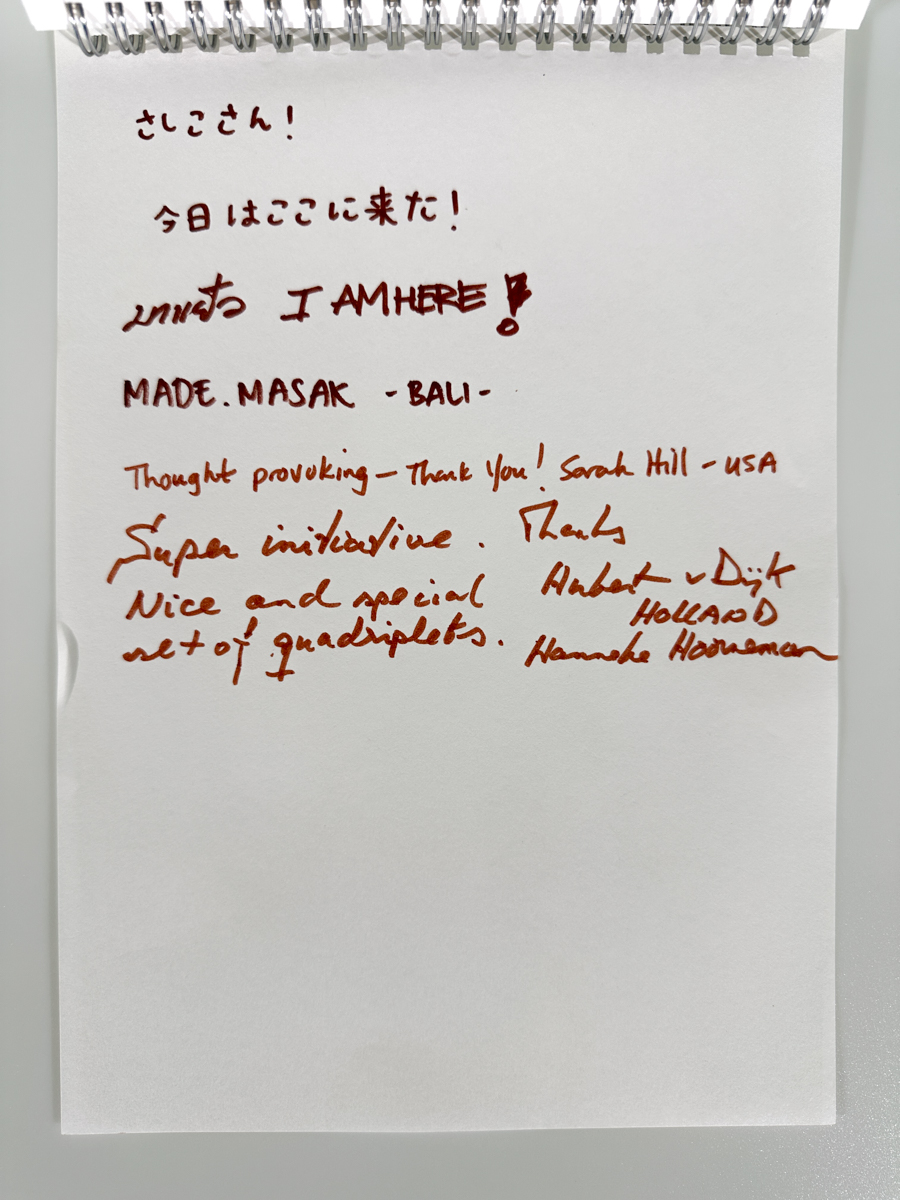 さしこさん!
今日はここに来た!
มาแล้ว I AM HERE!
MADE. MASAK - BALI -
Thought provoking - Thank You! Sarah Hill - USA
Super initiative. Thanks
Hubert v Dijk
Nice and special
HOLLAND
set of quadriplets.
Hanneke Hoorneman